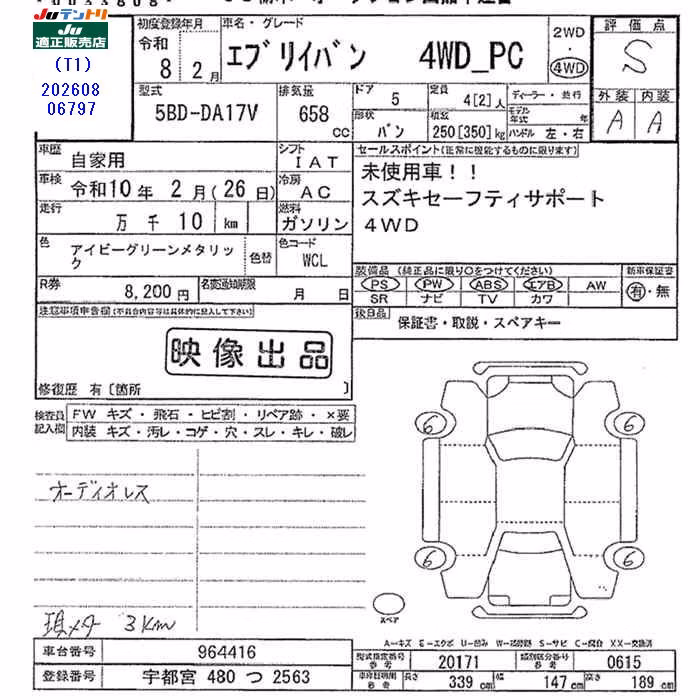 Juテントリ
Ju
適正販売店
(T1)
202608
06797
初度登録年月
令和
8 2月
車名・グレード
エブリイバン 4WD_PC
2WD
・
4WD
評価点
S
外装 内装
A A
型式
5BD-DA17V
排気量
658
cc
ドア
5
形状
バン
定員
4[2]人
積載
250[350]kg
ディーラー・並行
モデル年式 年
ハンドル 左・右
車歴
自家用
シフト
IAT
車検
令和10年 2月(26日)
冷房
AC
走行
万千10 km
燃料
ガソリン
色
アイビーグリーンメタリック
色替
色コード
WCL
R券
8,200円
名変通知期限
月 日
セールスポイント(正常に機能するものに限ります)
未使用車!!
スズキセーフティサポート
4WD
装備品 (純正品に限り〇をつけてください)
PS PW ABS エアB AW
SR ナビ TV カワ
新車保証書
有・無
後日品
保証書・取説・スペアキー
注意事項申告欄(不具合内容等は具体的に記入して下さい)
映像出品
修復歴 有〔箇所 〕
検査員記入欄
FW キズ・飛石・ヒビ割・リペア跡・×要
内装 キズ・汚レ・コゲ・穴・スレ・キレ・破レ
オーディオレス
現メータ 3Km
6 6
6 6
スペア
車台番号 964416
登録番号 宇都宮 480 つ 2563
A-キズ E-エクボ U-凹み W-波修跡 S-サビ C-腐食 XX-交換済
型式指定番号 参考 20171
類別区分番号 参考 0615
車検証明細 参考
長さ 339 cm
幅 147 cm
高さ 189 cm